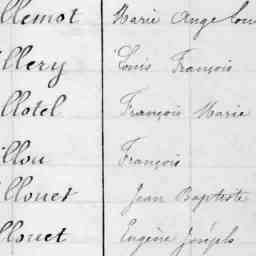 llemot Marie Ange Lou
llery Louis François
llotel François Marie
illou François
llouet Jean Baptiste
llouet Eugène Joseph